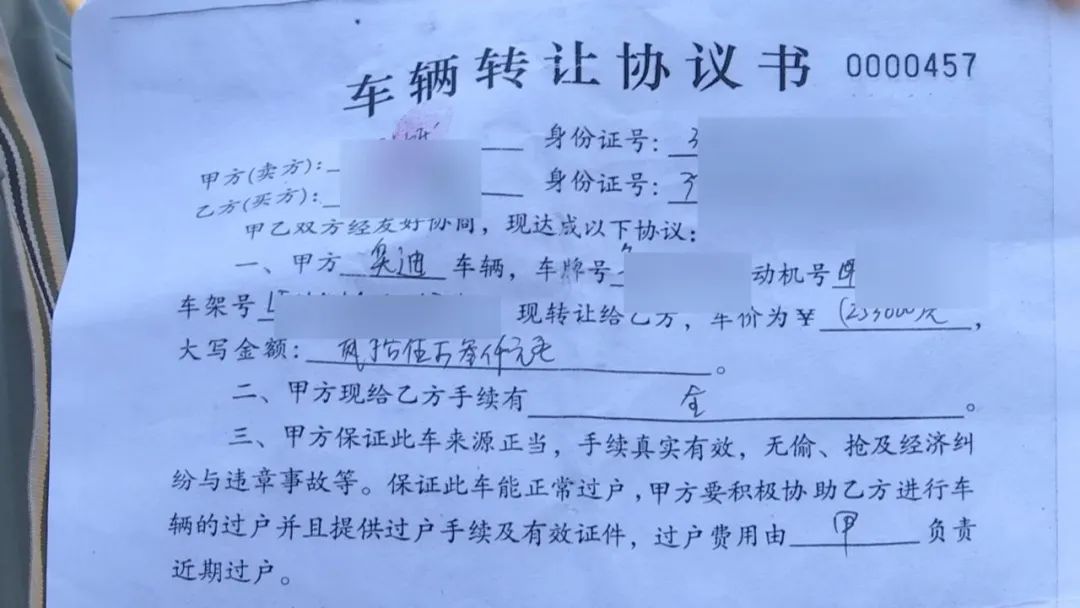 车辆转让协议书 0000457
甲方(卖方): 身份证号: 3
乙方(买方): 身份证号: 3
甲乙双方经友好协商，现达成以下协议:
一、甲方 奥迪 车辆，车牌号 动机号
车架号 L 现转让给乙方，车价为¥ (253000元，
大写金额: 贰拾伍万叁仟元毛。
二、甲方现给乙方手续有 全。
三、甲方保证此车来源正当，手续真实有效，无偷、抢及经济纠
纷与违章事故等。保证此车能正常过户，甲方要积极协助乙方进行车
辆的过户并且提供过户手续及有效证件，过户费用由 甲 负责
近期过户。